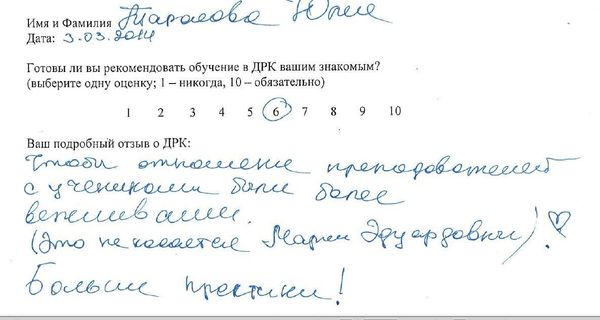 Имя и Фамилия Тарасова Юлия
Дата: 3.03.2014
Готовы ли вы рекомендовать обучение в ДРК вашим знакомым?
(выберите одну оценку; 1 – никогда, 10 – обязательно)
1 2 3 4 5 6 7 8 9 10
Ваш подробный отзыв о ДРК:
Чтобы отношение преподователей
с учениками были более
вежливыми.
(Это не касается Марии Эдуардовны)!♡
Больше практики!